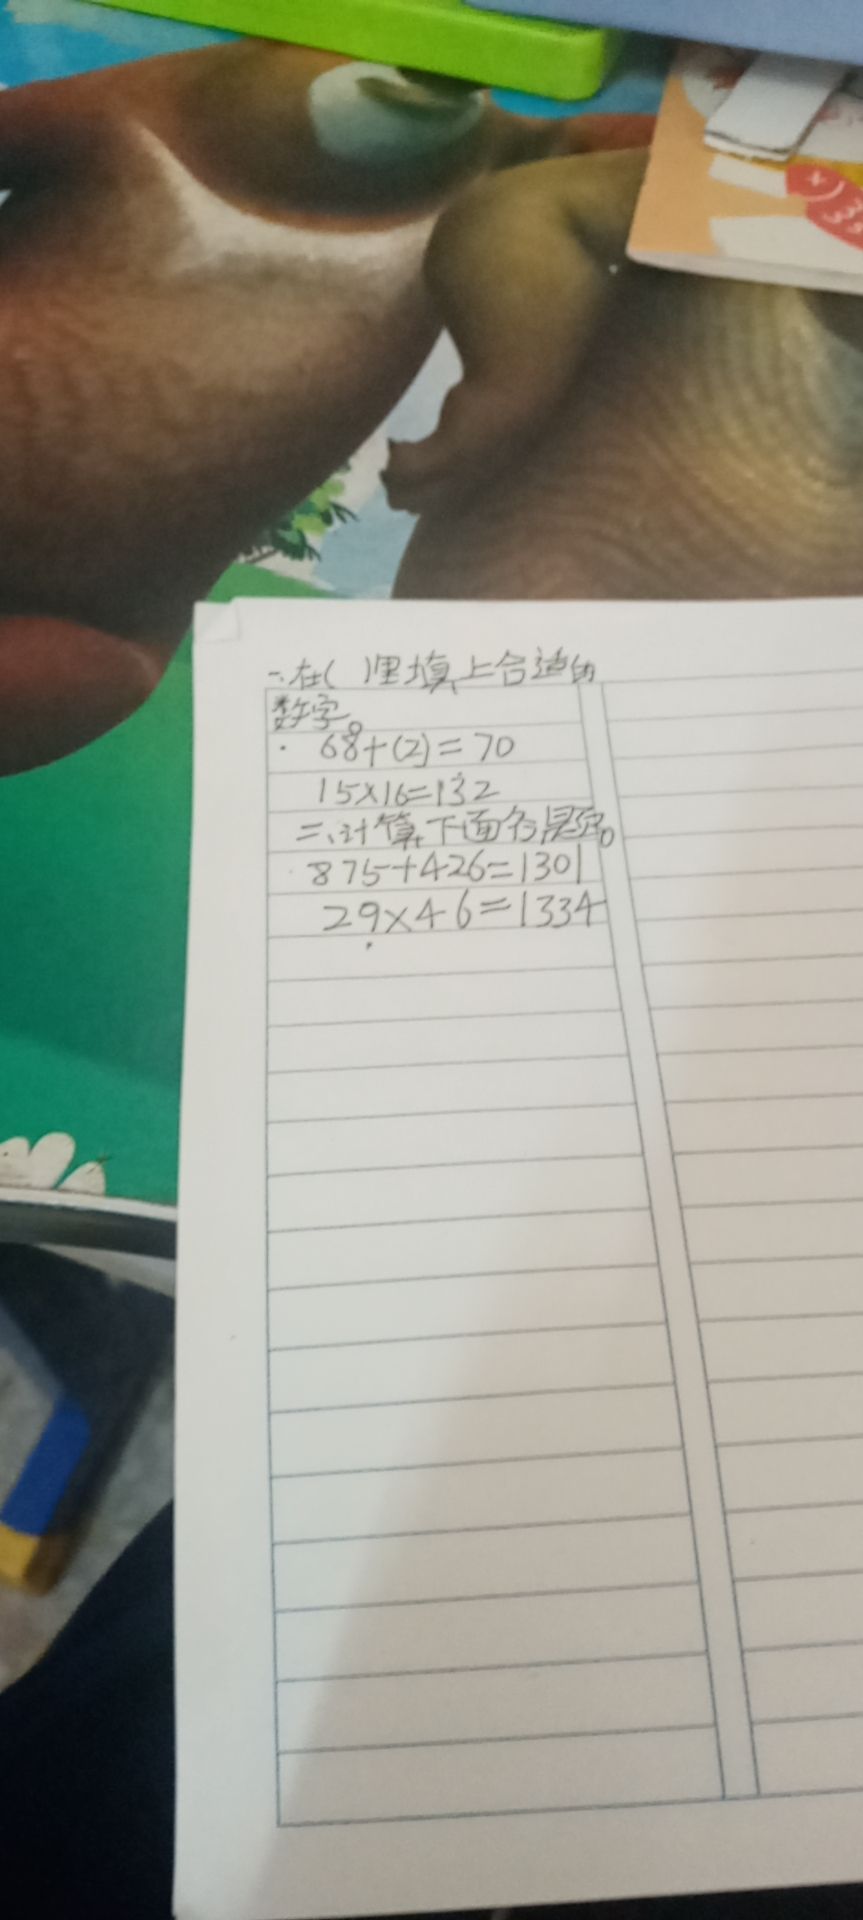 一、在( )里填上合适的
数字。
68+(2)=70
15×16=132
二、计算下面各题。
875+426=1301
29×46=1334